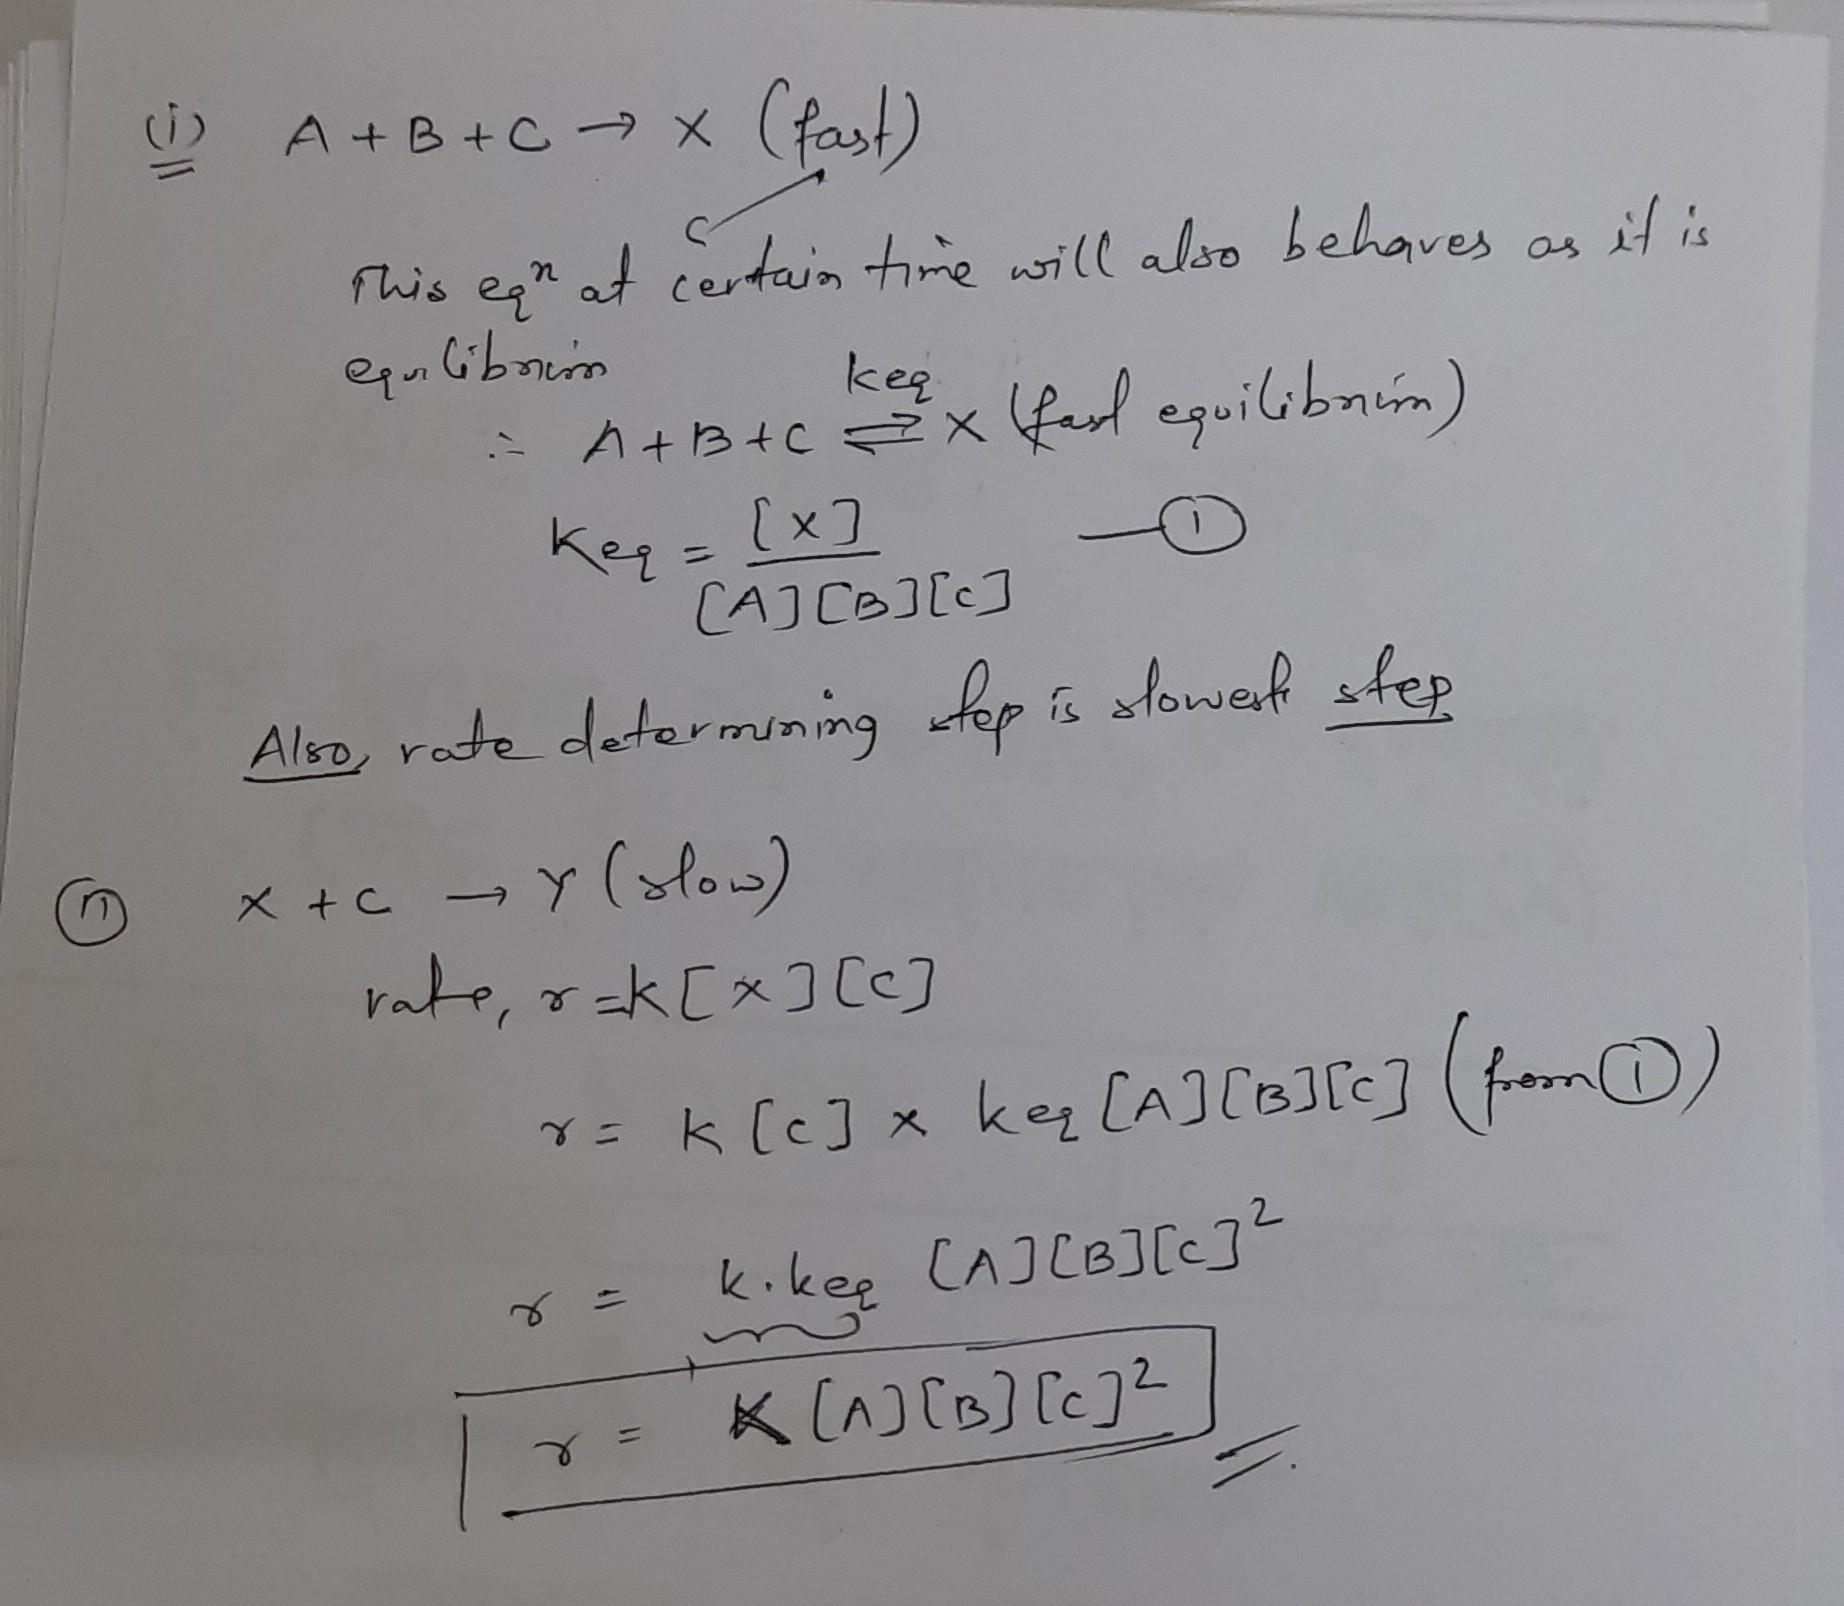 (i) A + B + C → X (fast)
This eqⁿ at certain time will also behaves as it is
equilibrium
∴ A + B + C ⇌ X (fast equilibrium)
keq
Keq = [X] / [A][B][C] — ①
Also, rate determining step is slowest step
(ii) X + C → Y (slow)
rate, r = k[X][C]
r = k[C] × keq [A][B][C] (from ①)
r = k.keq [A][B][C]²
r = K [A][B][C]²